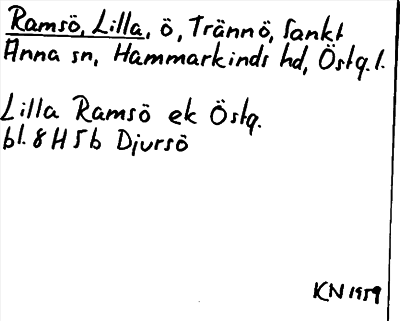 Ramsö, Lilla, ö, Trännö, Sankt
Anna sn, Hammarkinds hd, Östg.l.
Lilla Ramsö ek Östg.
bl. 8 H 5 b Djursö
KN 1959